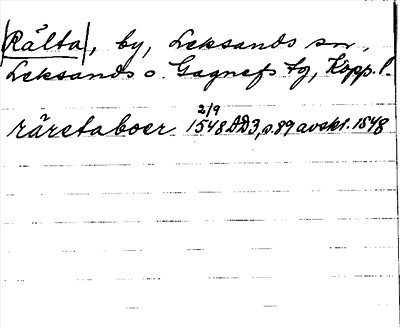 Rälta, by, Leksands sn,
Leksands o. Gagnefs tg, Kopp. l.
räretaboer 2/9 1548 DD3, s. 89 avskr. 1548